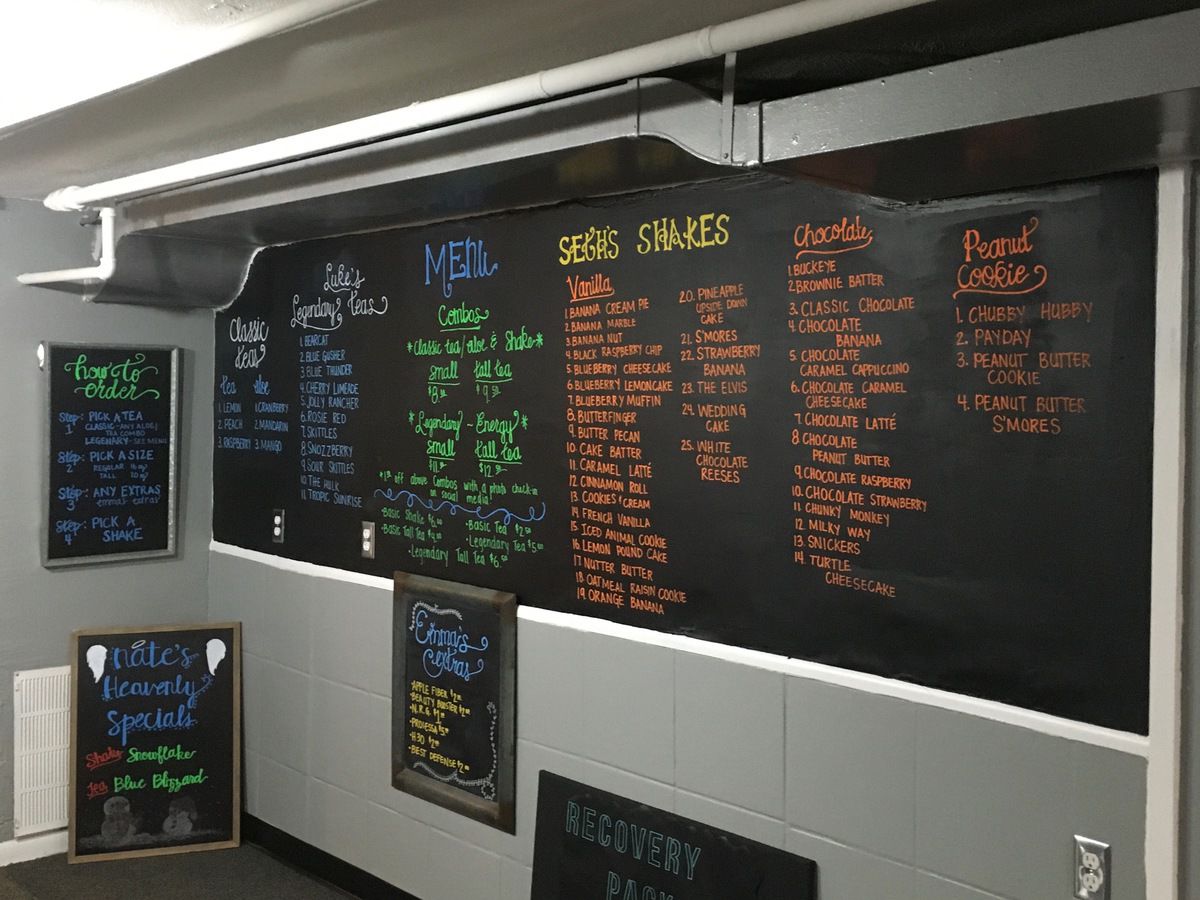 how to
order
Step 1: PICK A TEA
CLASSIC - ANY ALOE/
TEA COMBO
LEGENARY - SEE MENU
Step 2: PICK A SIZE
REGULAR 16 oz
TALL
Step 3: ANY EXTRAS
emma's extras
Step 4: PICK A
SHAKE
Classic
teas
tea
1. LEMON
2. PEACH
3. RASPBERRY
aloe
1. CRANBERRY
2. MANDARIN
3. MANGO
Luke's
Legendary teas
1. BEARCAT
2. BLUE GUSHER
3. BLUE THUNDER
4. CHERRY LIMEADE
5. JOLLY RANCHER
6. ROSIE RED
7. SKITTLES
8. SNOZZBERRY
9. SOUR SKITTLES
10. THE HULK
11. TROPIC SUNRISE
MENU
Combos
*Classic tea/aloe & Shake*
small tall tea
*Legendary ~ Energy*
small tall tea
*$1 off above Combos with a photo check-in
on social media!
Basic Shake $6.00
Basic Tall Tea
Basic Tea
Legendary Tea $5.00
Legendary Tall Tea
SETH'S SHAKES
Vanilla
1. BANANA CREAM PIE
2. BANANA MARBLE
3. BANANA NUT
4. BLACK RASPBERRY CHIP
5. BLUEBERRY CHEESECAKE
6. BLUEBERRY LEMONCAKE
7. BLUEBERRY MUFFIN
8. BUTTERFINGER
9. BUTTER PECAN
10. CAKE BATTER
11. CARAMEL LATTÉ
12. CINNAMON ROLL
13. COOKIES & CREAM
14. FRENCH VANILLA
15. ICED ANIMAL COOKIE
16. LEMON POUND CAKE
17. NUTTER BUTTER
18. OATMEAL RAISIN COOKIE
19. ORANGE BANANA
20. PINEAPPLE
UPSIDE DOWN
CAKE
21. S'MORES
22. STRAWBERRY
BANANA
23. THE ELVIS
24. WEDDING
CAKE
25. WHITE
CHOCOLATE
REESES
Chocolate
1. BUCKEYE
2. BROWNIE BATTER
3. CLASSIC CHOCOLATE
4. CHOCOLATE
BANANA
5. CHOCOLATE
CARAMEL CAPPUCCINO
6. CHOCOLATE CARAMEL
CHEESECAKE
7. CHOCOLATE LATTÉ
8. CHOCOLATE
PEANUT BUTTER
9. CHOCOLATE RASPBERRY
10. CHOCOLATE STRAWBERRY
11. CHUNKY MONKEY
12. MILKY WAY
13. SNICKERS
14. TURTLE
CHEESECAKE
Peanut
Cookie
1. CHUBBY HUBBY
2. PAYDAY
3. PEANUT BUTTER
COOKIE
4. PEANUT BUTTER
S'MORES
nate's
Heavenly
Specials
Shake Snowflake
Tea Blue Blizzard
Emma's
extras
• APPLE FIBER $2.00
• BEAUTY BOOSTER $2.00
• N.R.G. $1.00
• PROLESSA $5.00
• H3O $2.00
• BEST DEFENSE $2.00
RECOVERY
PACK